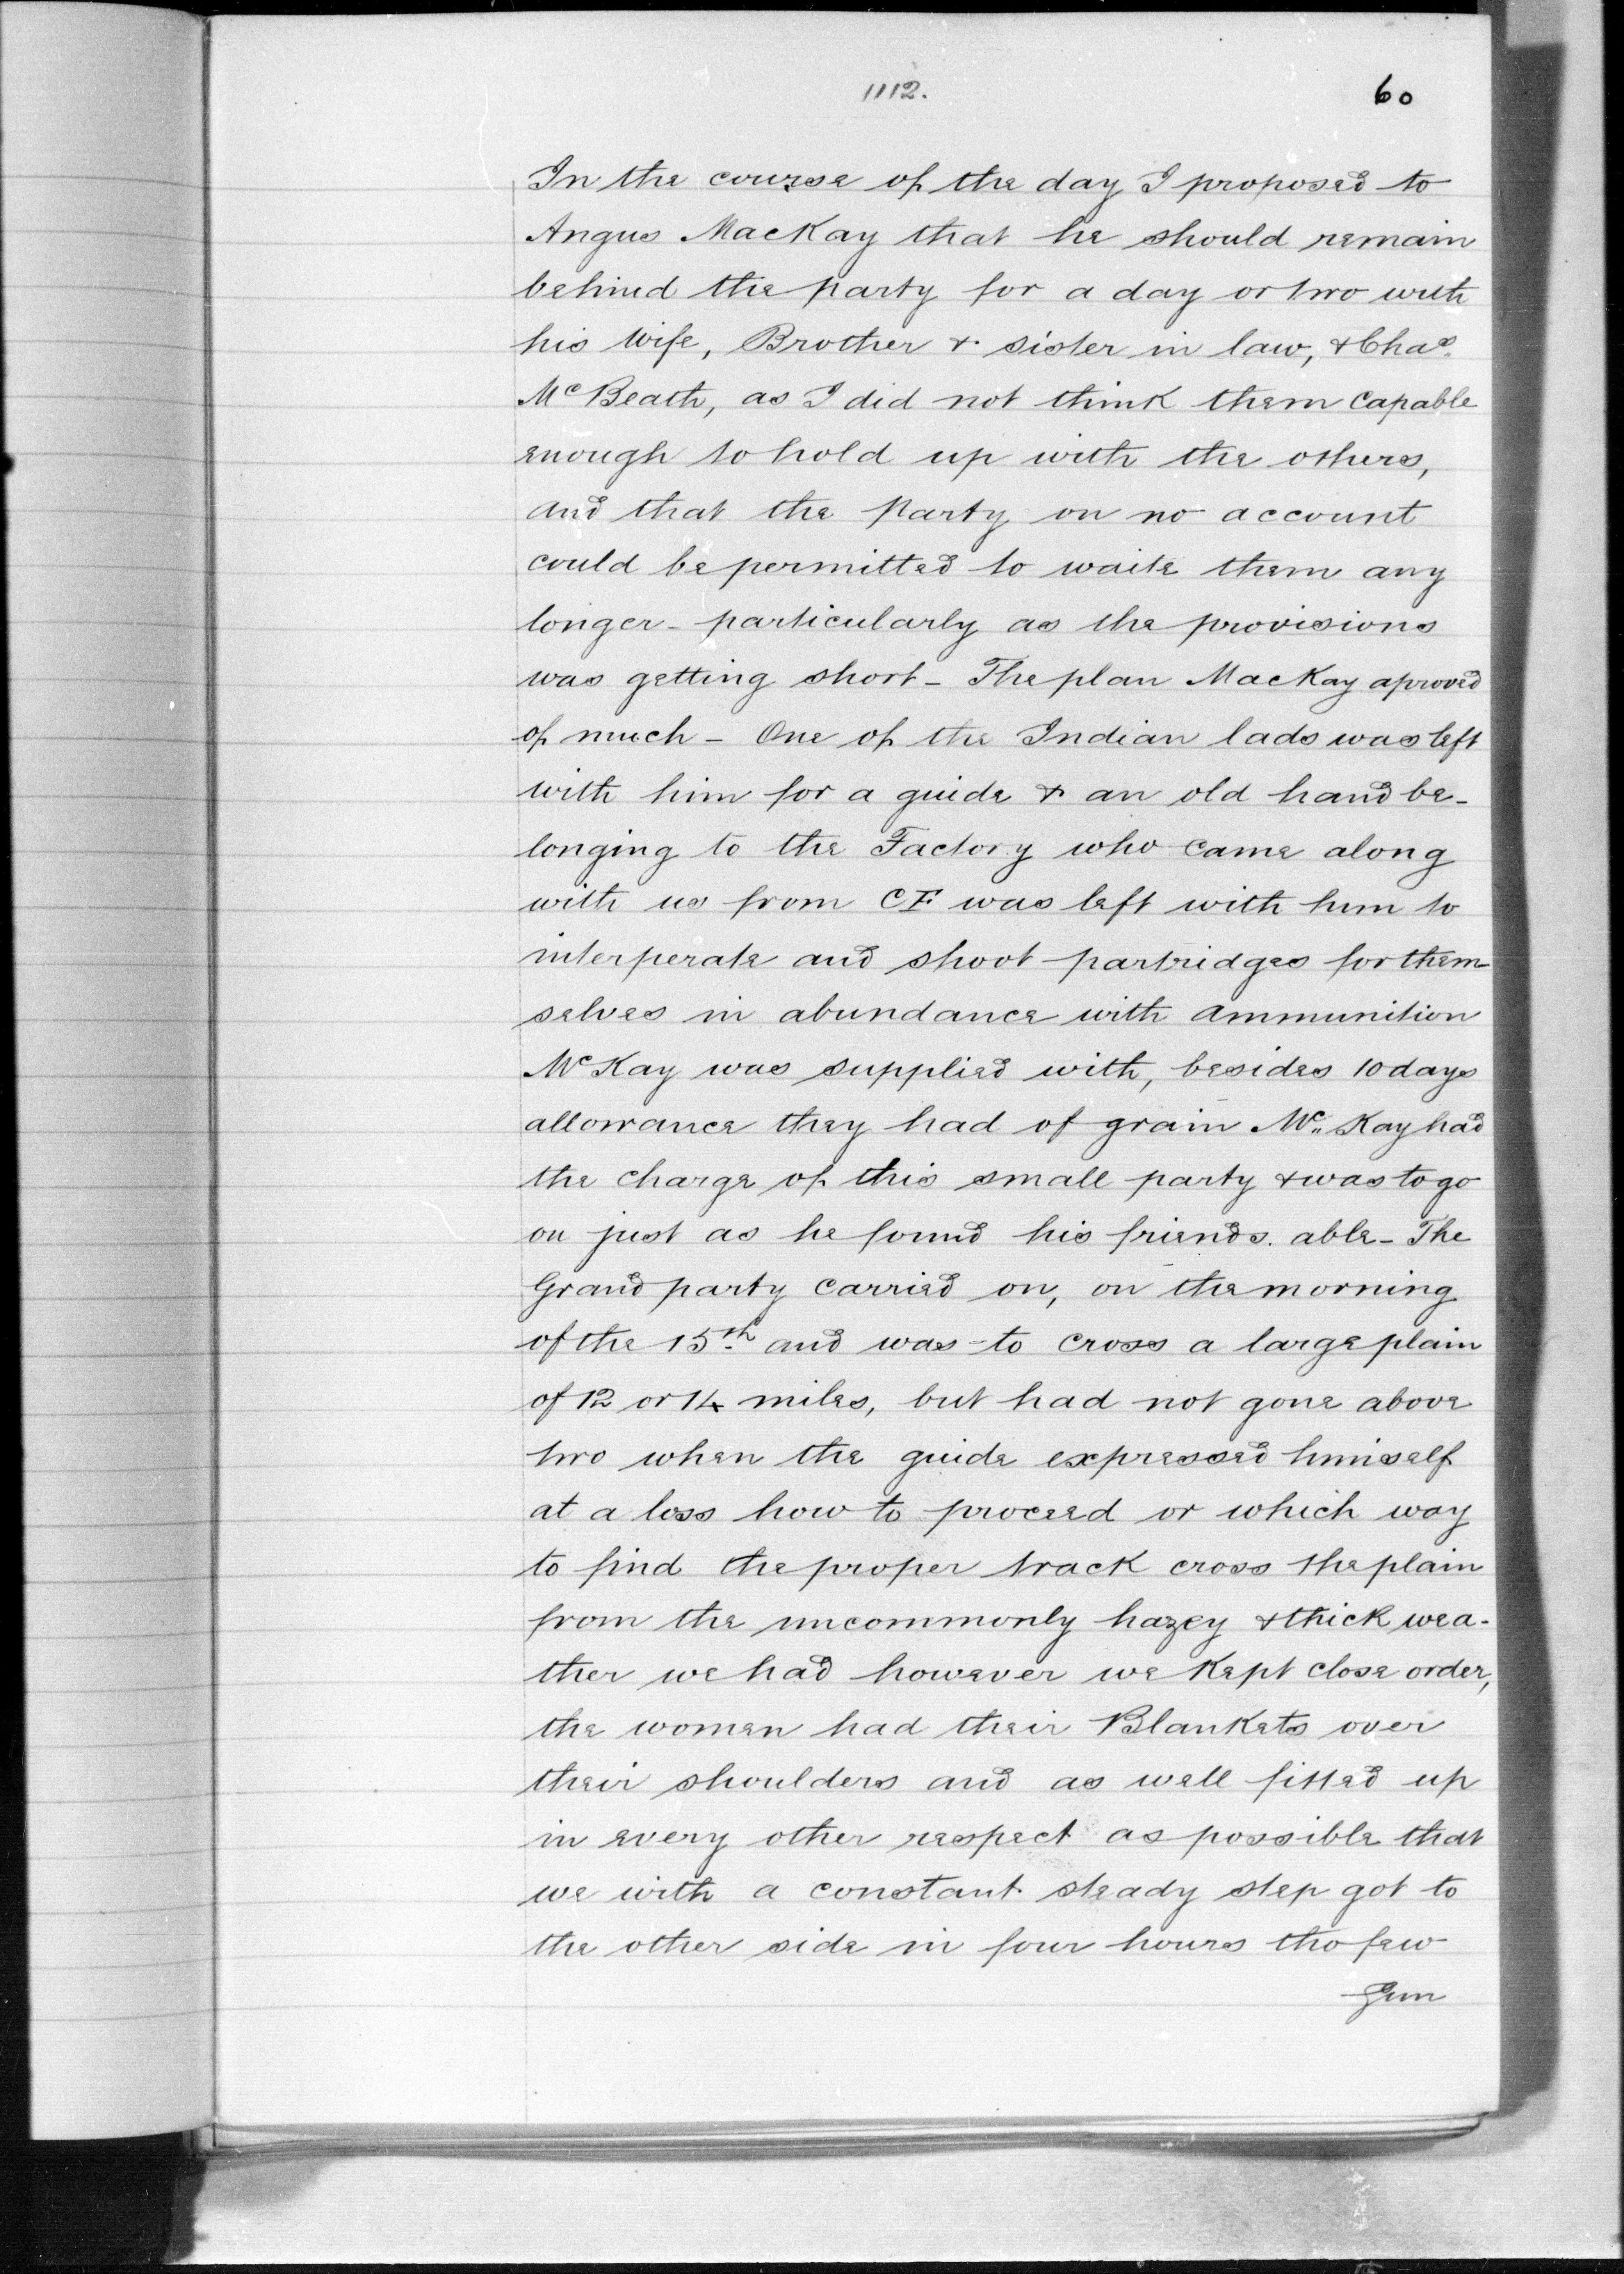 1112.
60
In the course of the day I proposed to
Angus MacKay that he should remain
behind the party for a day or two with
his wife, Brother & sister in law, & Chas.
McBeath, as I did not think them capable
enough to hold up with the others,
and that the party on no account
could be permitted to waite them any
longer - particularly as the provisions
was getting short - The plan MacKay aproved
of much - One of the Indian lads was left
with him for a guide & an old hand be-
longing to the Factory who came along
with us from CF was left with him to
interperate and shoot partridges for them-
selves in abundance with ammunition
McKay was supplied with, besides 10 days
allowance they had of grain Mc. Kay had
the charge of this small party & was to go
on just as he found his friends. able - The
Grand party carried on, on the morning
of the 15th and was to cross a large plain
of 12 or 14 miles, but had not gone above
two when the guide expressed himself
at a loss how to proceed or which way
to find the proper track cross the plain
from the uncommonly hazey & thick wea-
ther we had however we kept close order,
the women had their Blankets over
their shoulders and as well fitted up
in every other respect as possible that
we with a constant steady step got to
the other side in four hours tho few
Gun